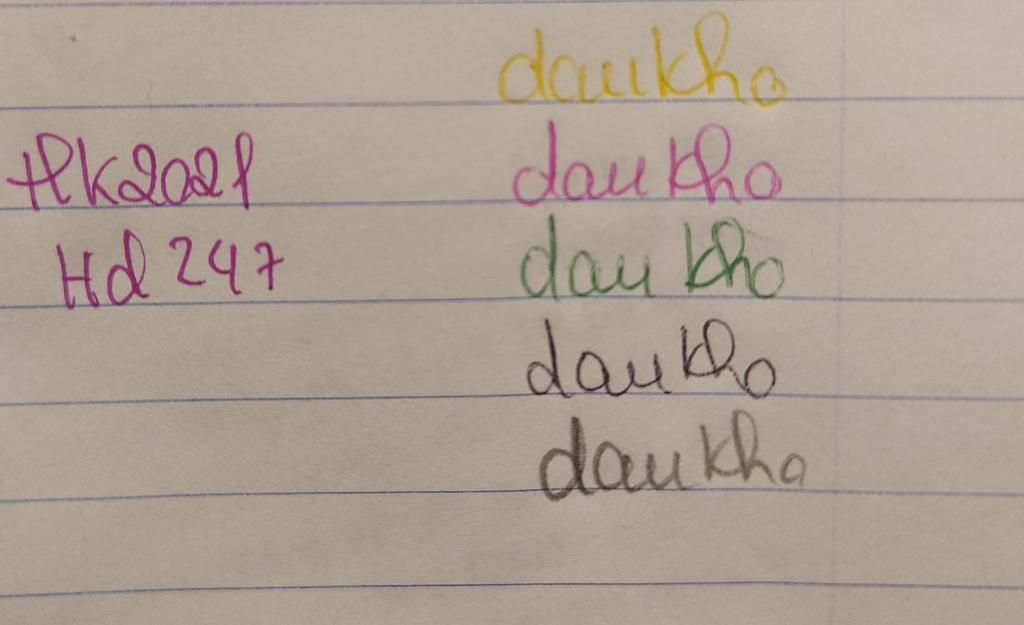 daukho
HK2021 daukho
Hd 247 dau kho
daukho
daukho